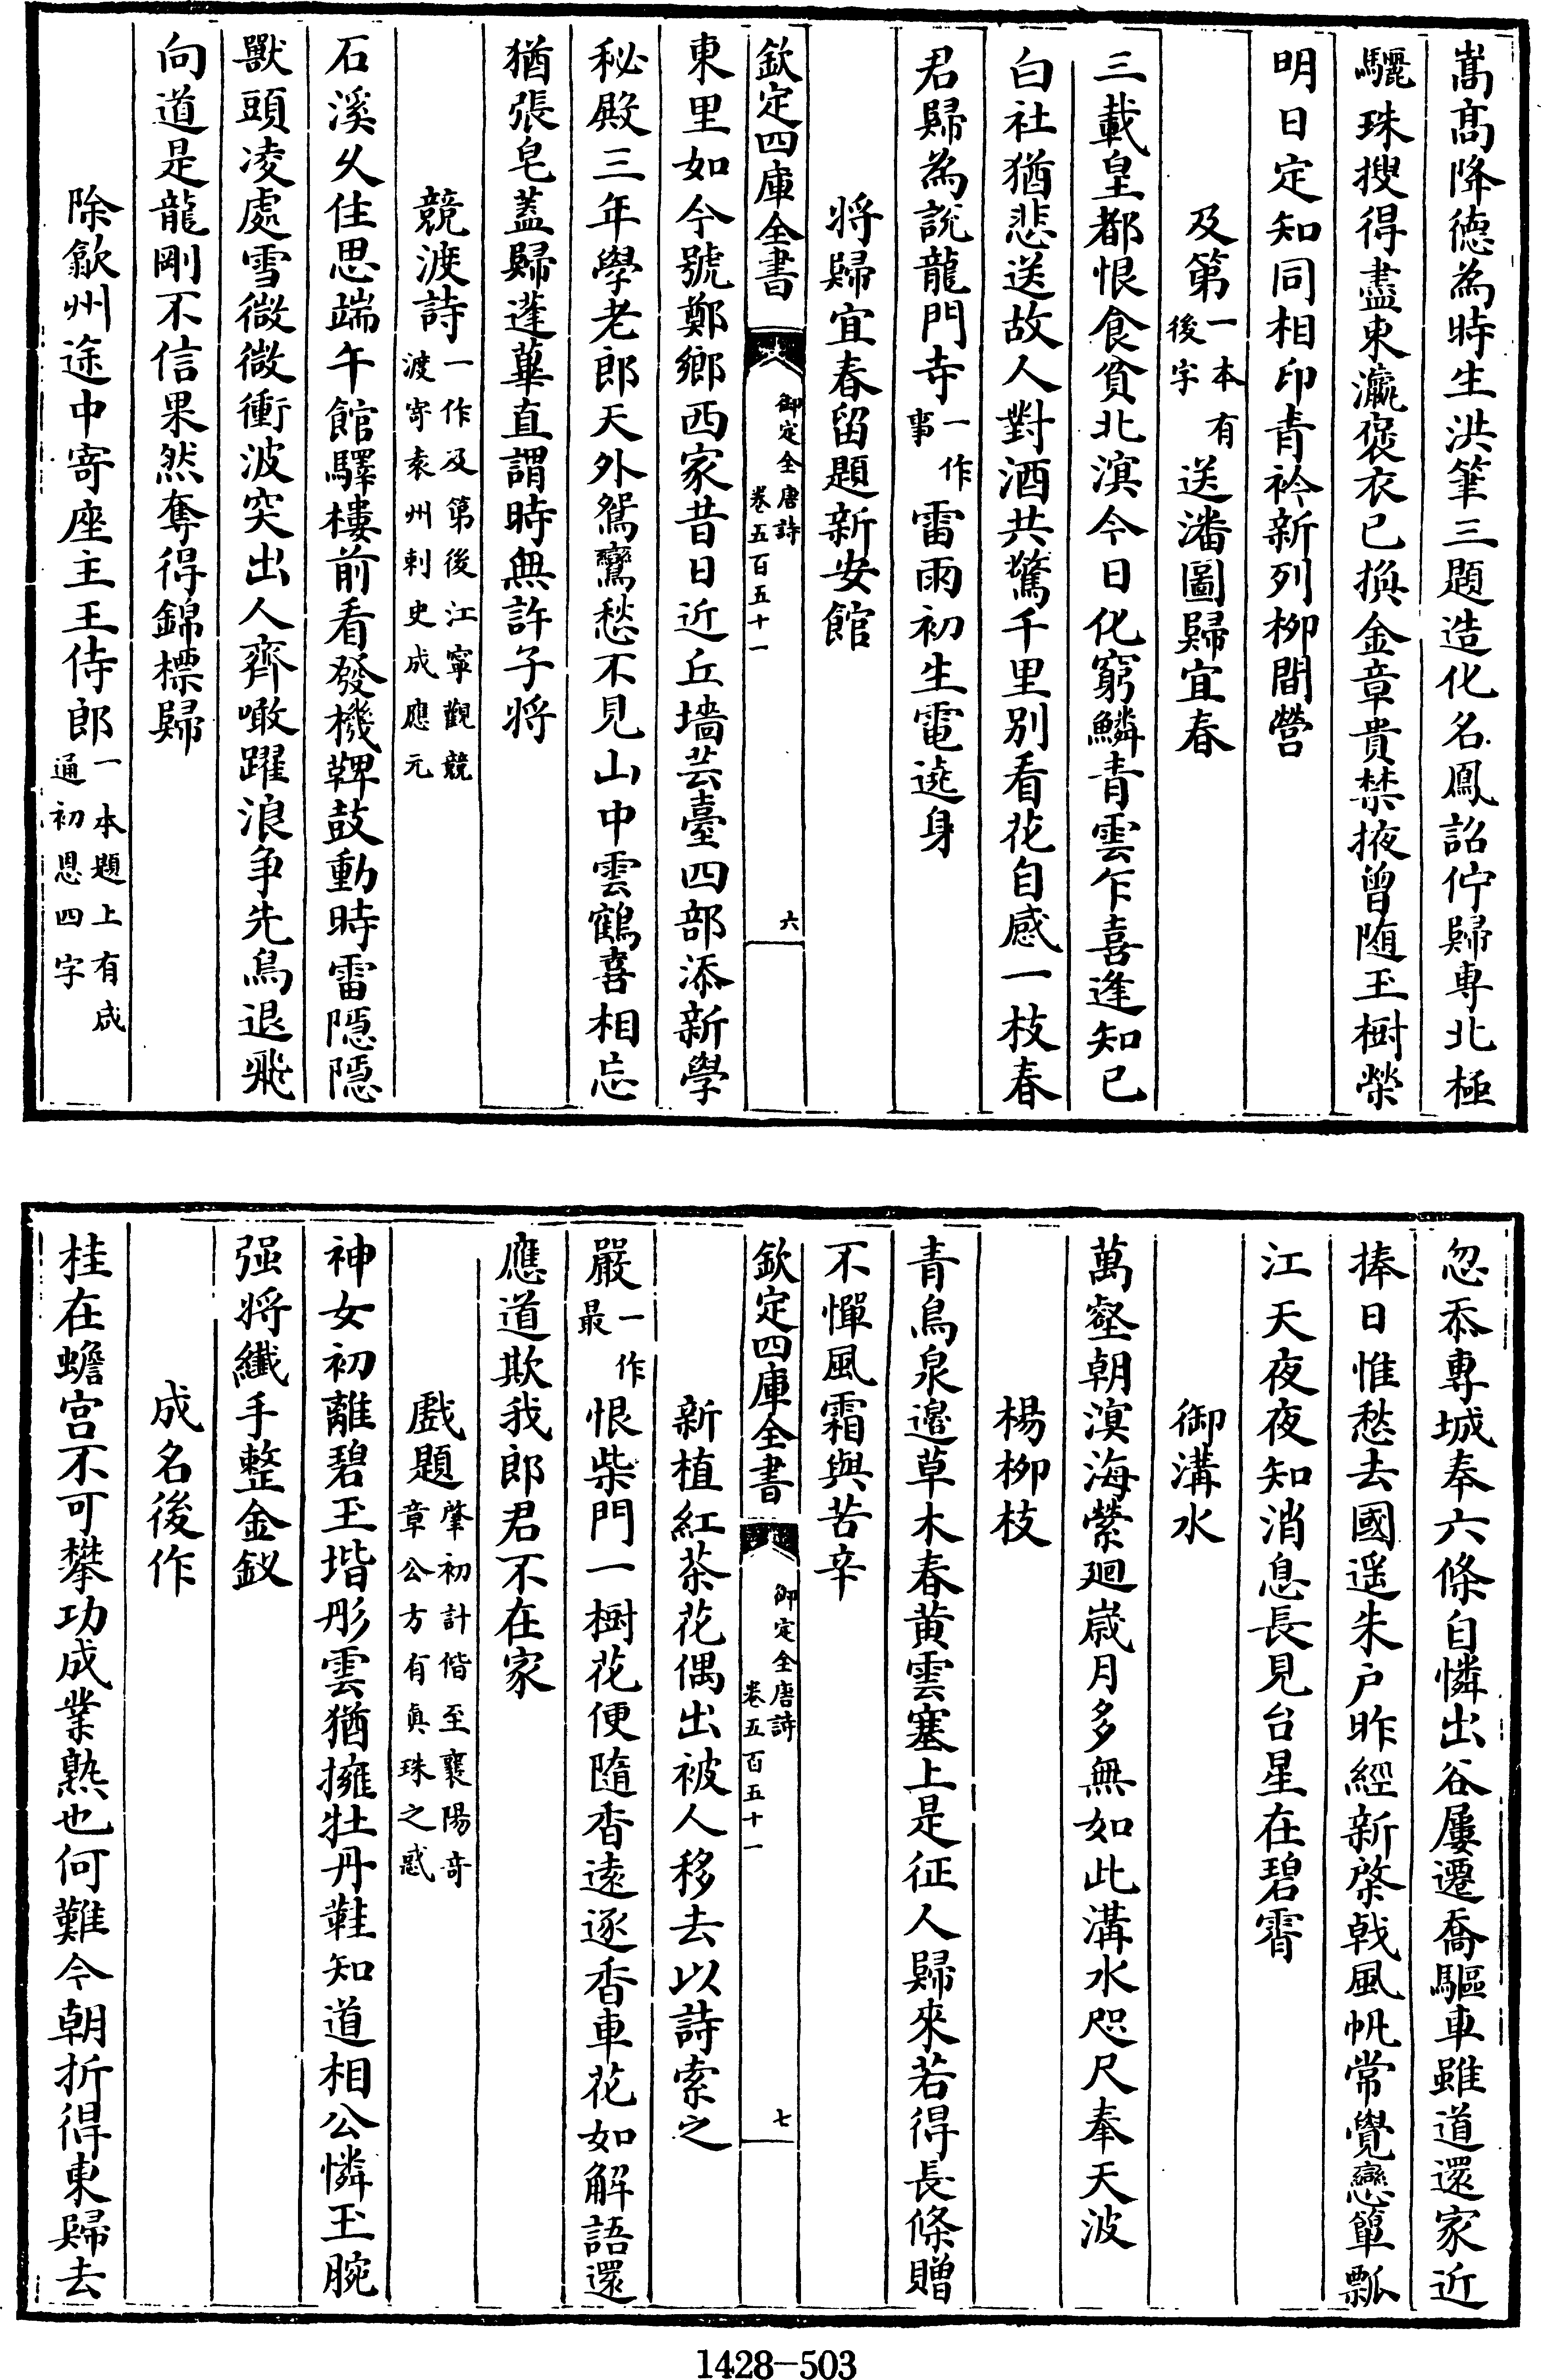 嵩髙降徳為時生洪筆三題造化名鳳詔佇歸専北極
驪珠搜得盡東瀛褒衣已換金章貴禁掖曾随玉樹榮
明日定知同相印青衿新列栁間營
及第一本有後字送潘圖歸宜春
三載皇都恨食貧北溟今日化窮鱗青雲乍喜逢知己
白社猶悲送故人對酒共驚千里别看花自感一枝春
君歸為說龍門寺一作事雷雨初生電遶身
将歸宜春留題新安館
欽定四庫全書 御定全唐詩 卷五百五十一 六
東里如今號鄭鄉西家昔日近丘墻芸臺四部添新學
秘殿三年學老郎天外鴛鸞愁不見山中雲鶴喜相忘
猶張皂蓋歸蓬蓽直謂時無許子将
競渡詩一作及第後江寧觀競渡寄袁州刺史成應元
石溪乆住思端午館驛樓前看發機鞞鼓動時雷隠隠
獸頭凌處雪微微衝波突出人齊噉躍浪争先鳥退飛
向道是龍剛不信果然奪得錦標歸
除歙州途中寄座主王侍郎一本題上有成通初恩四字
忽忝專城奉六條自憐出谷屢遷喬驅車雖道還家近
捧日惟愁去國遥朱户昨經新棨戟風帆常覺戀簞瓢
江天夜夜知消息長見台星在碧霄
御溝水
萬壑朝溟海縈廻嵗月多無如此溝水咫尺奉天波
楊栁枝
青鳥泉邉草木春黄雲塞上是征人歸來若得長條贈
不憚風霜與苦辛
欽定四庫全書 御定全唐詩 卷五百五十一 七
新植紅茶花偶出被人移去以詩索之
嚴一作最恨柴門一樹花便隨香逺逐香車花如解語還
應道欺我郎君不在家
戲題肇初計偕至襄陽奇章公方有眞珠之惑
神女初離碧玉堦彤雲猶擁牡丹鞋知道相公憐玉腕
强将纎手整金釵
成名後作
桂在蟾宫不可攀功成業熟也何難今朝折得東歸去
1428-503